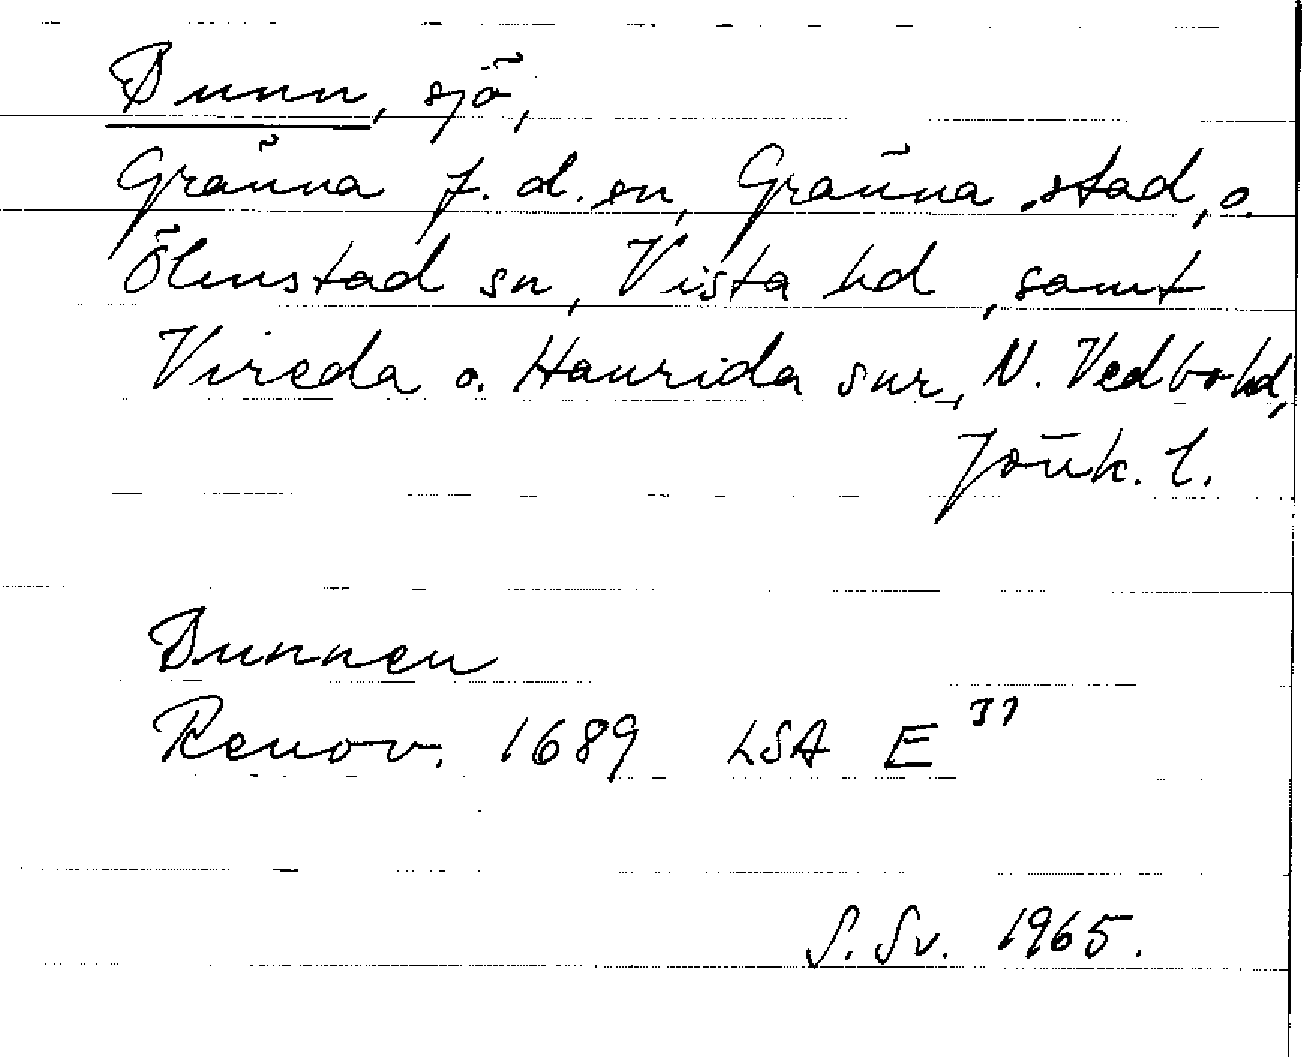 Bunn, sjö,
Gränna f. d. sn, Gränna stad, o.
Ölmstad sn, Vista hd, samt
Vireda o. Haurida snr, N. Vedbo hd,
Jönk. l.
Bunnen
Renov. 1689 LSA E 37
S. Sv. 1965.